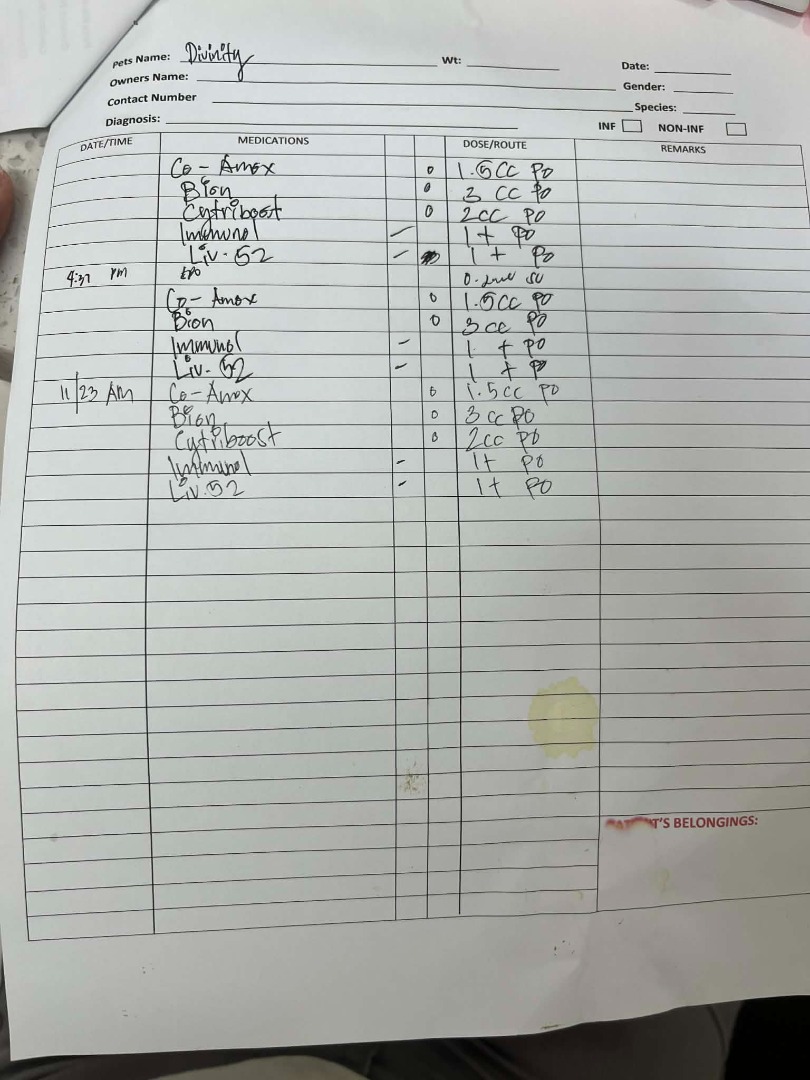 Pets Name: Divinity Wt: Date:
Owners Name: Gender:
Contact Number Species:
Diagnosis: INF NON-INF
DATE/TIME MEDICATIONS DOSE/ROUTE REMARKS
Co-Amox o 1.5cc PO
Bion o 3 cc PO
Cytriboost o 2cc PO
Immunol - 1 t PO
Liv-52 - 1 t PO
4:37 PM EPO SC
Co-Amox o 1.5cc PO
Bion o 3 cc PO
Immunol - 1 t PO
Liv-52 - 1 t PO
11/23 AM Co-Amox o 1.5cc PO
Bion o 3 cc PO
Cytriboost o 2cc PO
Immunol - 1t PO
Liv.52 - 1t PO
PATIENT'S BELONGINGS: